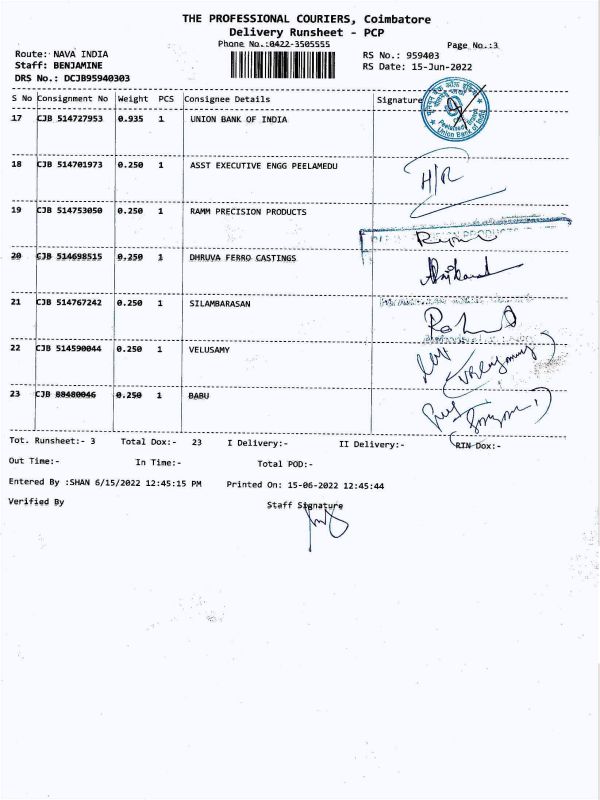 THE PROFESSIONAL COURIERS, Coimbatore
Delivery Runsheet - PCP
Phone No.:0422-3505555
Page No.:3
Route: NAVA INDIA
RS No.: 959403
Staff: BENJAMINE
RS Date: 15-Jun-2022
DRS No.: DCJB95940303
S No Consignment No Weight PCS Consignee Details Signature
17 CJB 514727953 0.935 1 UNION BANK OF INDIA
Union Bank of India
18 CJB 514701973 0.250 1 ASST EXECUTIVE ENGG PEELAMEDU
H/R
19 CJB 514753050 0.250 1 RAMM PRECISION PRODUCTS
20 CJB 514698515 0.250 1 DHRUVA FERRO CASTINGS
21 CJB 514767242 0.250 1 SILAMBARASAN
22 CJB 514590044 0.250 1 VELUSAMY
23 CJB 88480046 0.250 1 BABU
Tot. Runsheet:- 3 Total Dox:- 23 I Delivery:- II Delivery:- RTN Dox:-
Out Time:- In Time:- Total POD:-
Entered By :SHAN 6/15/2022 12:45:15 PM Printed On: 15-06-2022 12:45:44
Verified By Staff Signature